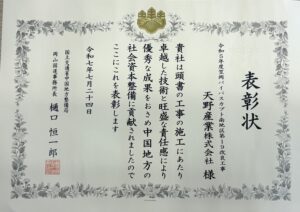 表彰状
令和5年度笠岡バイパスカブト南地区第1改良工事
天野産業株式会社 様
貴社は頭書の工事の施工にあたり
卓越した技術と旺盛な責任感により
優秀な成果をおさめ中国地方の
社会資本整備に貢献されましたので
ここにこれを表彰します
令和七年七月二十四日
国土交通省中国地方整備局
岡山国道事務所長 樋口 恒一郎